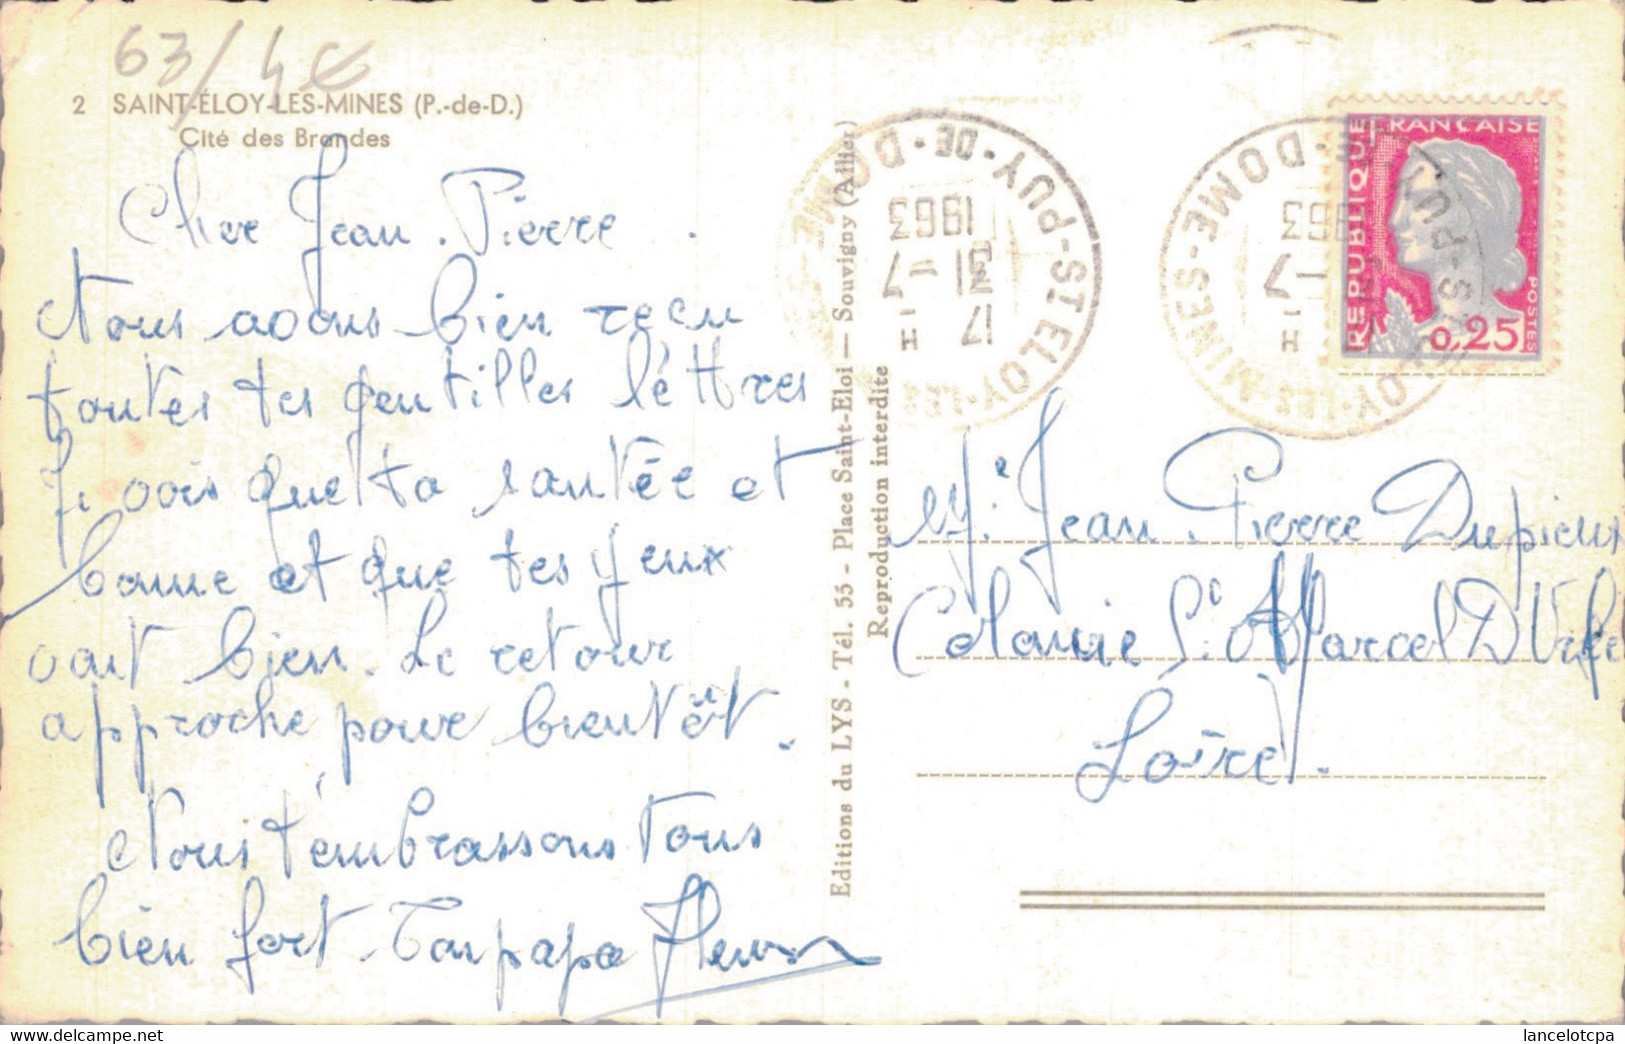 63/4€
2 SAINT-ÉLOY-LES-MINES (P.-de-D.)
Cité des Brandes
Cher Jean. Pierre
Nous avons bien reçu
toutes tes gentilles lettres
Je vois que ta santée et
bonne et que tes yeux
vont bien. Le retour
approche pour bientôt.
Nous t'embrassons tous
bien fort. Ton papa
Editions du LYS - Tél. 55 - Place Saint-Eloi — Souvigny (Allier)
Reproduction interdite
ST ELOY-LES-MINES-PUY-DE-DOME
17 H
31-7
1963
ST ELOY-LES-MINES-PUY-DE-DOME
H
-7
1963
REPUBLIQUE FRANÇAISE
POSTES
0,25F
Mr. Jean. Pierre Dupieux
Colonie St Marcel
Loiret.
www.delcampe.net
lancelotcpa